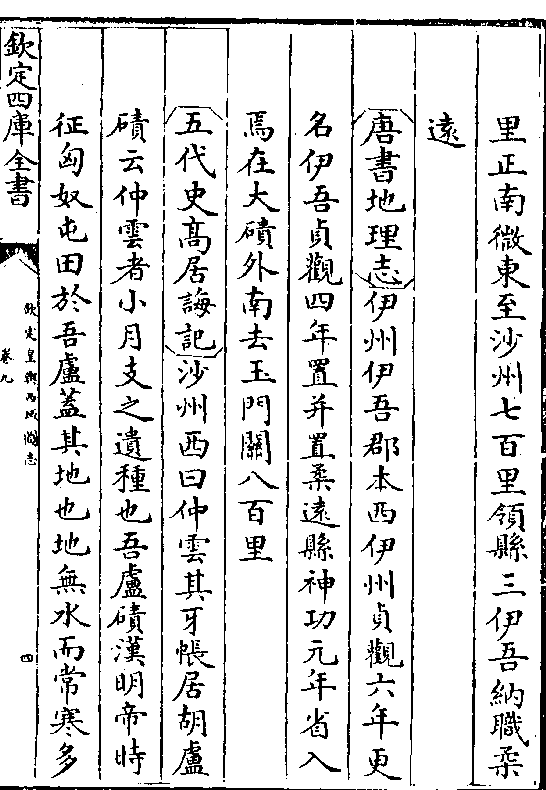 里正南微東至沙州七百里領縣三伊吾納職柔
遠
唐書地理志伊州伊吾郡本西伊州貞觀六年更
名伊吾貞觀四年置并置柔遠縣神功元年省入
焉在大磧外南去玉門關八百里
五代史高居誨記沙州西曰仲雲其牙帳居胡盧
磧云仲雲者小月支之遺種也吾盧磧漢明帝時
征匈奴屯田於吾盧蓋其地也地無水而常寒多
欽定四庫全書
欽定皇輿西域圖志
卷九
四